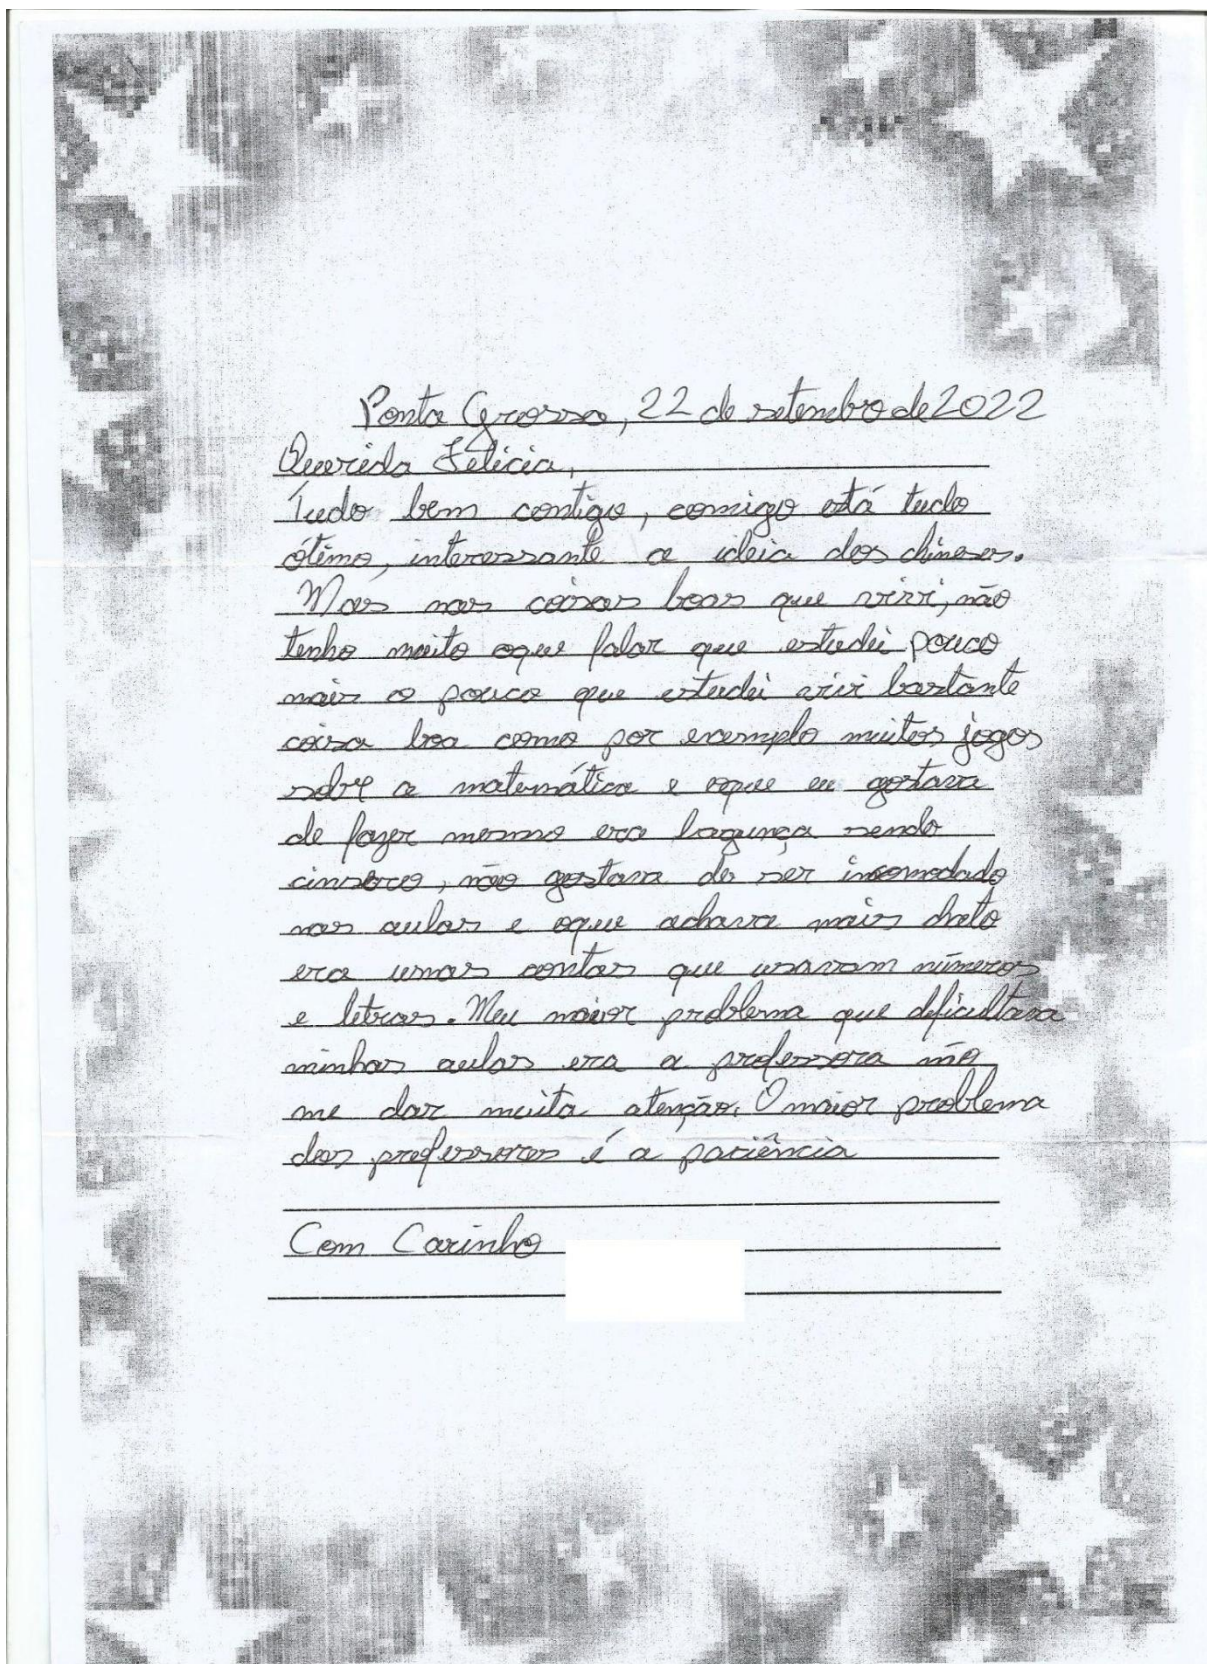 Ponta Grossa, 22 de setembro de 2022
Querida Felicia,
Tudo bem contigo, comigo está tudo
ótimo, interessante a ideia dos chineses.
Mas nas coisas boas que vivi, não
tenho muito oque falar que estudei pouco
mais o pouco que estudei vivi bastante
coisa boa como por exemplo muitos jogos
sobre a matemática e oque eu gostava
de fazer mesmo era bagunça sendo
cincero, não gostava de ser incomodado
nas aulas e oque achava mais chato
era umas contas que usavam números
e letras. Meu maior problema que dificultava
minhas aulas era a professora não
me dar muita atenção. O maior problema
dos professores é a paciência
Com Carinho